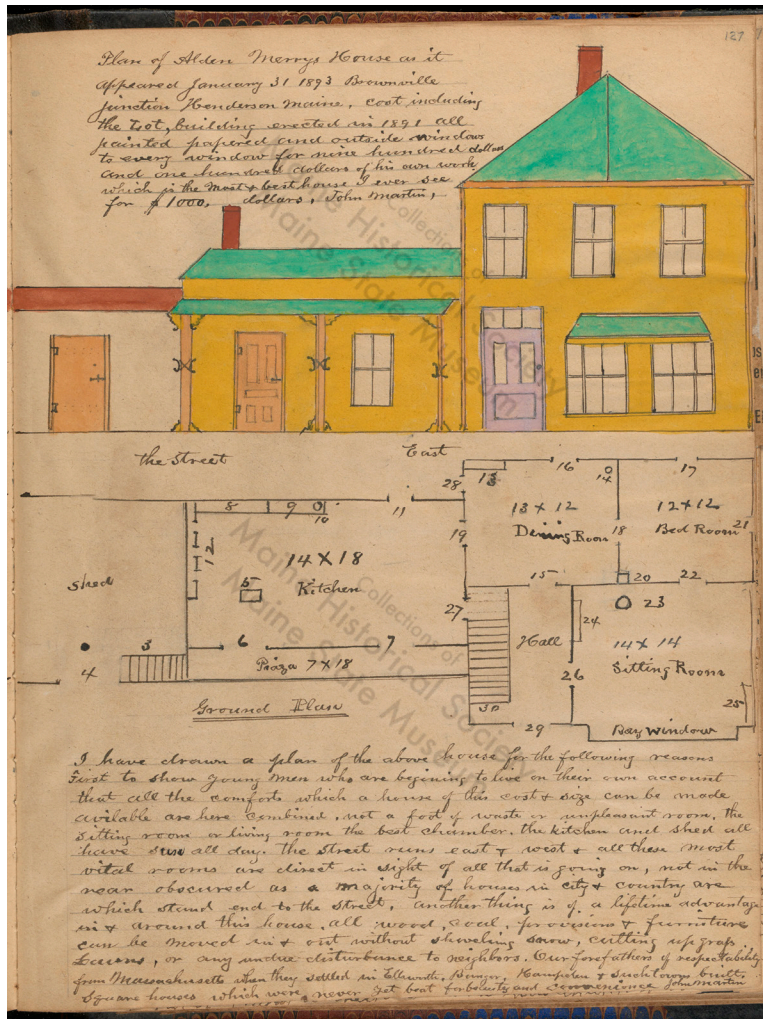 127
Plan of Alden Merrys House as it
appeared January 31 1893 Brownville
junction Henderson Maine, cost including
the Lot, building erected in 1891 all
painted papered and outside windows
to every window for nine hundred dollars
and one hundred dollars of his own work
which is the most & best house I ever see
for $1000, dollars, John Martin,
the Street East
28 13 16 14 17
8 9 10 11
13 X 12 12 X 12
Dining Room 18 Bed Room 21
12 14 X 18 19
Shed 5 Kitchen
15 20 22
27 23
24
Hall 14 X 14
3 6 7
4 Piaza 7 X 18 Sitting Room
26
25
Ground Plan 30
29 Bay window
I have drawn a plan of the above house for the following reasons
First to show young men who are begining to live on their own account
that all the comforts which a house of this cost & size can be made
avilable are here combined, not a foot of waste or unpleasant room. the
Sitting room or living room the best chamber. the kitchen and shed all
have sun all day. the street runs east & west & all these most
vital rooms are direct in sight of all that is going on, not in the
rear obscured as a majority of houses in city & country are
which stand end to the street, another thing is of a lifetime advantage
in & around this house. all wood, coal, provisions & furniture
can be moved in & out without shoveling snow, cutting up grass
Lawns, or any undue disturbance to neighbors. Our forefathers of respectability
from Massachusetts when they settled in Ellsworth, Bangor, Hampden & such towns built
Square houses which were never yet beat for beauty and convenience John Martin
Collections of
Maine Historical Society
Maine State Museum
Collections of
Maine Historical Society
Maine State Museum